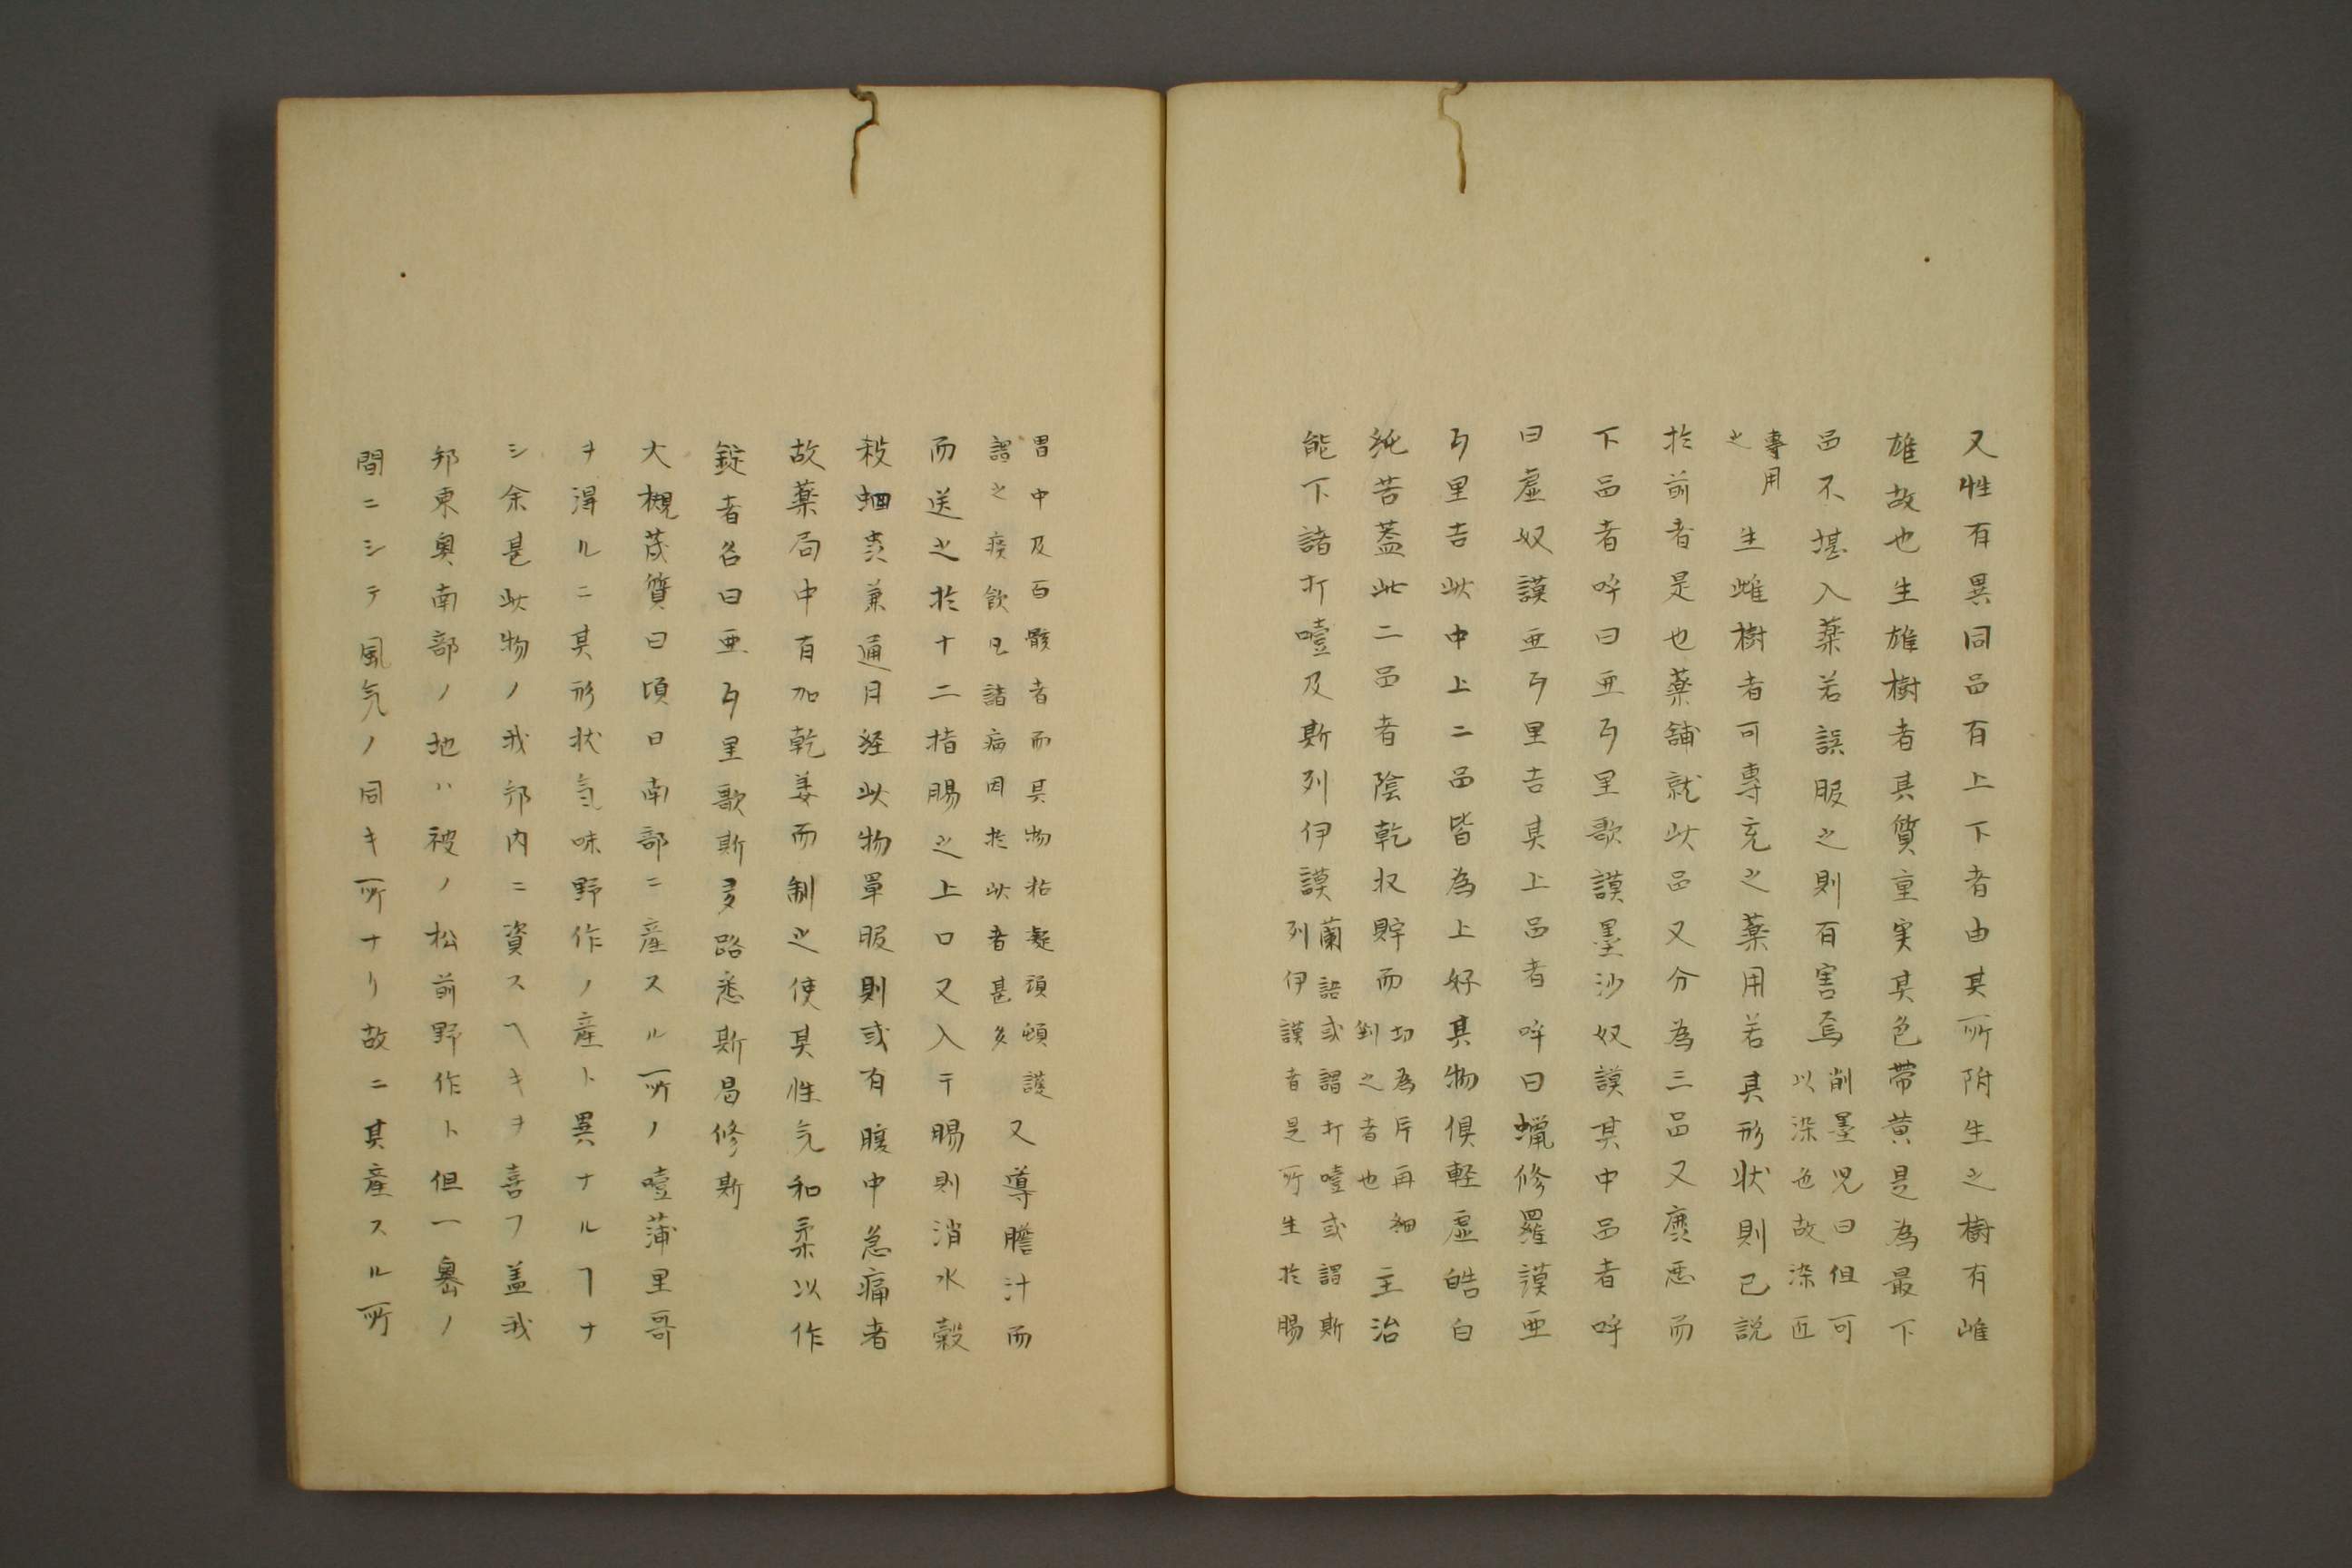 又性有異同品有上下者由其所附生之樹有雌
雄故也生雄樹者其質重実其色帯黄是為最下
品不堪入薬若誤服之則有害焉
削墨児曰但可
以染色故染匠
専用
之
生雌樹者可専充之薬用若其形状則已説
於前者是也薬舗就此品又分為三品又麁悪而
下品者呼曰亜丂里歌謨墨沙奴謨其中品者呼
曰虚奴謨亜丂里吉其上品者呼曰蝋修羅謨亜
丂里吉此中上二品皆為上好其物倶軽虚皓白
純苦蓋此二品者陰乾収貯而
切為片再細
剉之者也
主治
能下諸打噎及斯列伊謨
蘭語或謂打噎或謂斯
列伊謨者是所生於腸
胃中及百骸者而其物粘凝頑頓護
謂之痰飲凡諸病因於此者甚多
又導膽汁而
而送之於十二指腸之上口又入于腸則消水穀
殺蛔虫兼通月経此物単服則或有腹中急痛者
故薬局中有加乾姜而制之使其性気和柔以作
錠者名曰亜丂里歌斯多路悉斯昌修斯
大槻茂質曰頃日南部ニ産スル所ノ噎蒲里哥
ヲ得ルニ其形状気味野作ノ産ト異ナルヿナ
シ余甚此物ノ我邦内ニ資スヘキヲ喜フ蓋我
邦東奥南部ノ地ハ被ノ松前野作ト但一嶴ノ
間ニシテ風気ノ同キ所ナリ故ニ其産スル所